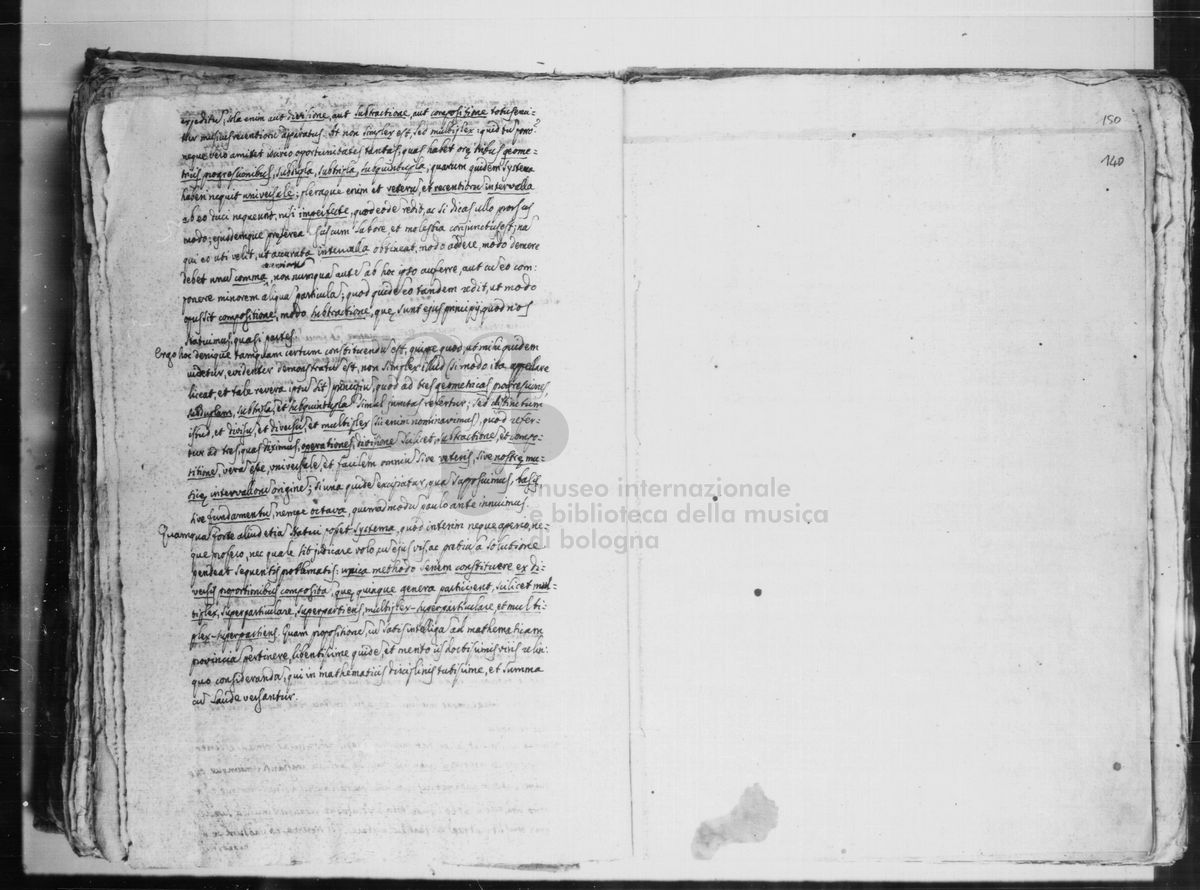 expeditu, ola enim aut divisione, aut subtractione, aut compositione totus eni=
tur recentioris apparatus. At non simplex est, sed multiplex: quid tu porrò
neque vero amittet vario oportunitates tantas, quas habet tribus geome=
tricis progressionibus, subdupla, subtripla, subquintupla, quarum quidem systema
haberi nequit universale; pleraque enim et veteru, et recentioru intervalla
ab eo duci nequeunt, nisi imperfecte, quod eode redit, ac si dicas ullo prorsus
modo; ejusdemque preterea usus cum labore, et molestia conjunctus est; na
qui eo uti velit, ut accurata intervalla obtineat, modo addere, modo demere
debet unu comma, non nunqua aute ab hoc ipso auferre, aut cu eo com=
ponere minorem aliqua particula; quod quide eo tandem redit, ut modo
opus sit compositione, modo subtractione, que sunt ejus principij, quod nos
statuimus, quasi partes.
Ergo hoc denique tamquam certum constituendu est, quippe quod, ut mihi quidem
videtur, evidenter demonstratu est, non simplex illud (si modo ita appellare
liceat, et tale revera ipsu sit) principiu, quod ad tres geometricas progressiones,
subduplam, subtripla, et subquintupla simul junctas refertur; sed distinctum
istud, et divisu, et diversu, et multiplex (sic enim nominavimus), quod refer=
tur ad tres, quas diximus, operationes, divisione scilicet, subtractione, et compo=
sitione, vera esse, universale, et facilem omniu sive veteris, sive nostre mu=
sice intervalloru origine; si una quide excipiatur, qua supposuimus, basis
sive fundamentu, nempe octava, quemadmodu paulo ante innuimus.
Quamqua forte aliud etia statui posset systema, quod interim neque aperio, ne=
que profero, nec quale sit judicare volo, cu ejus vis, ac pretiu a solutione
pendeat sequentis problematis: unica methodo seriem constituere ex di=
versis proportionibus composita, que quinque genera participent, scilicet mul=
tiplex, superparticulare, superpartiens, multiplex-superparticulare, et multi=
plex-superpartiens. Quam propositione, cu satis intelliga ad mathematicam
provincia pertinere, libentissime quide, et merito iis doctissimis viris relin=
quo consideranda, qui in mathematicis disciplinis tutissime, et summa
cu laude versantur.
150
140
museo internazionale
e biblioteca della musica
di bologna